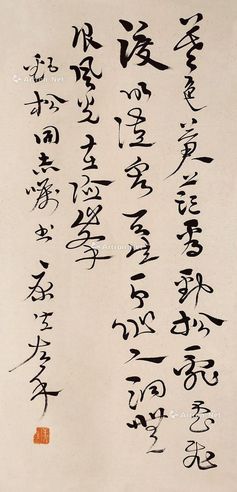 暮色蒼茫看勁松亂雲飛
渡仍從容天生一個仙人洞無
限風光在險峰
勁松同志囑書
康生左手